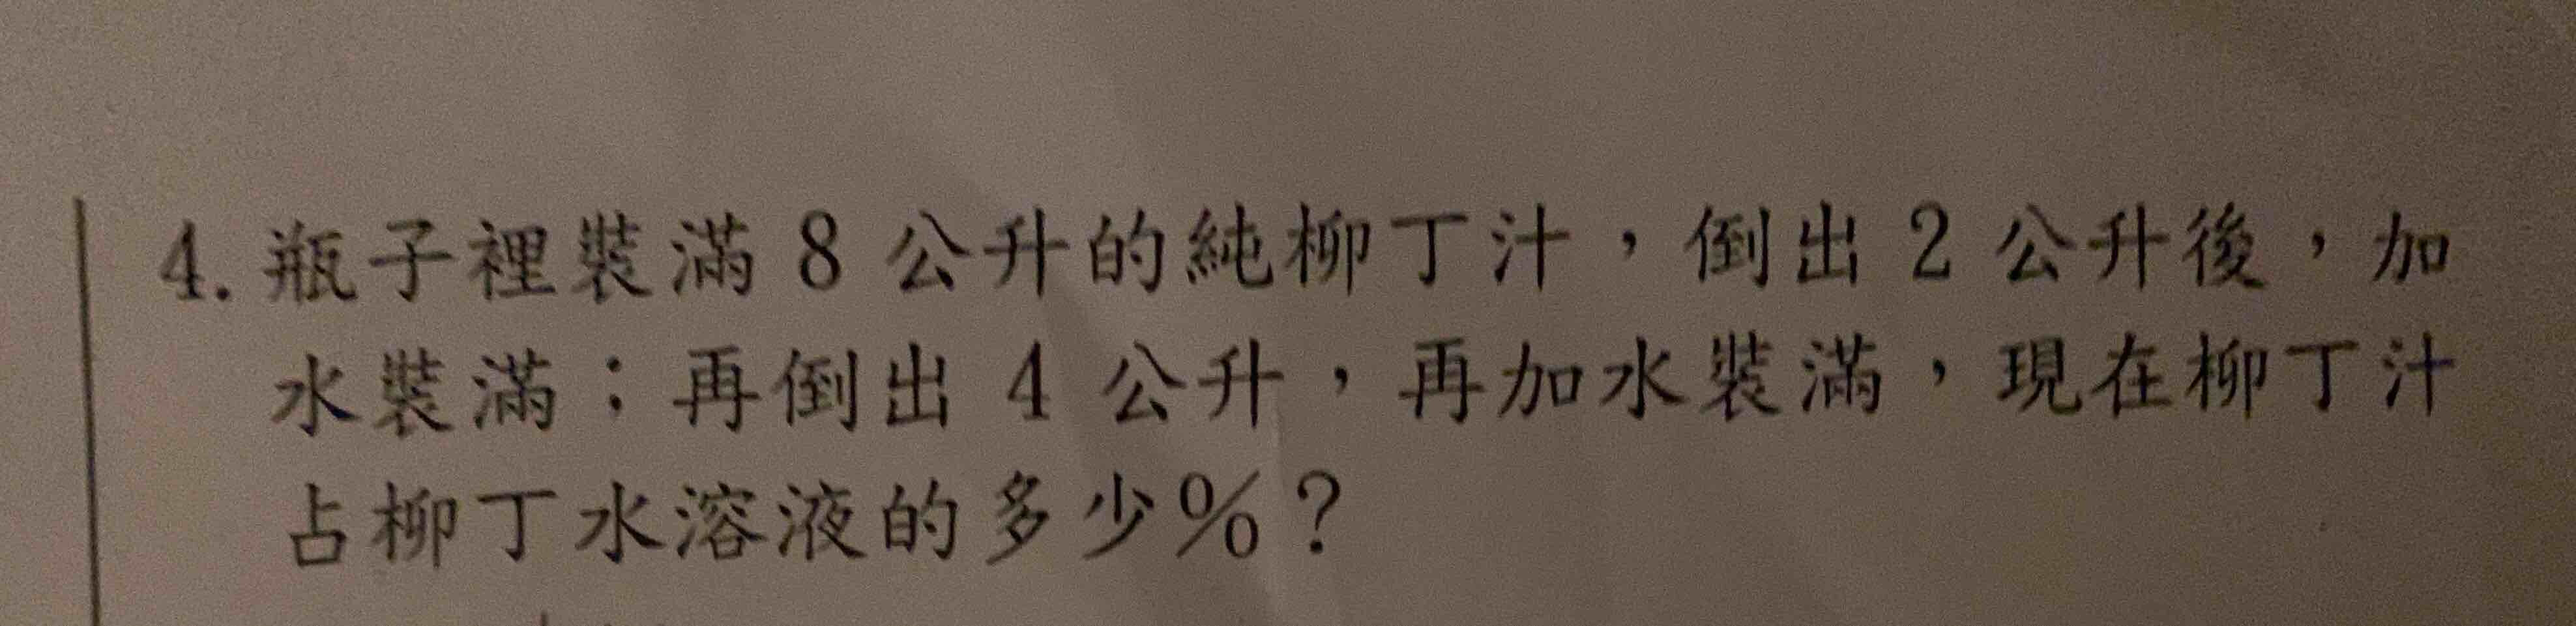 4. 瓶子裡裝滿 8 公升的純柳丁汁，倒出 2 公升後，加
水裝滿；再倒出 4 公升，再加水裝滿，現在柳丁汁
占柳丁水溶液的多少%？